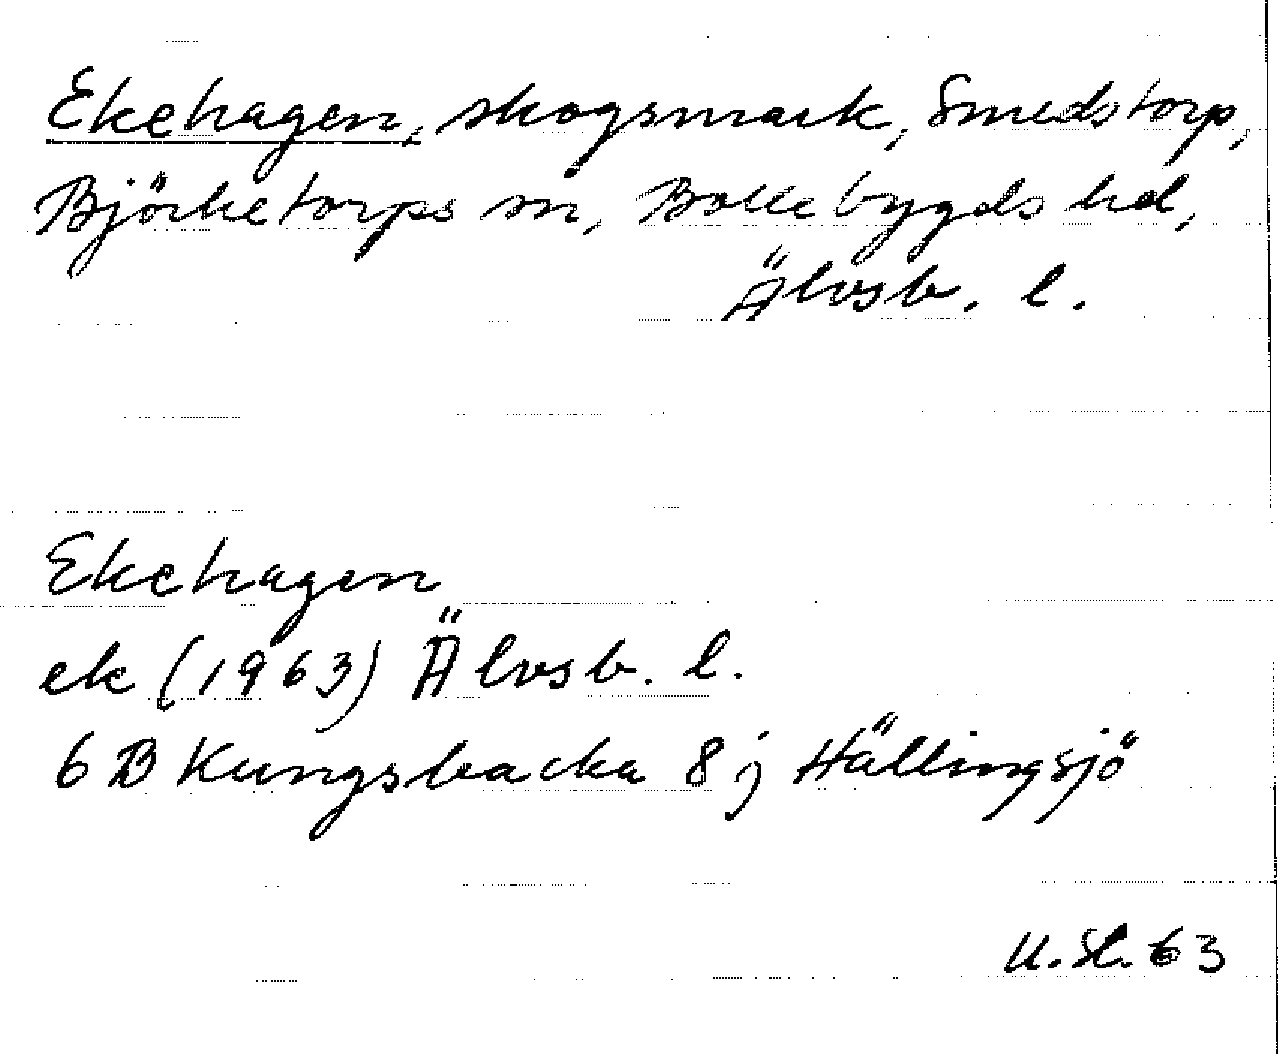 Ekehagen, skogsmark, Smedstorp,
Björketorps sn, Bollebygds hd,
Älvsb. l.
Ekehagen
ek (1963) Älvsb. l.
6 B Kungsbacka 8 j Hällingsjö
63